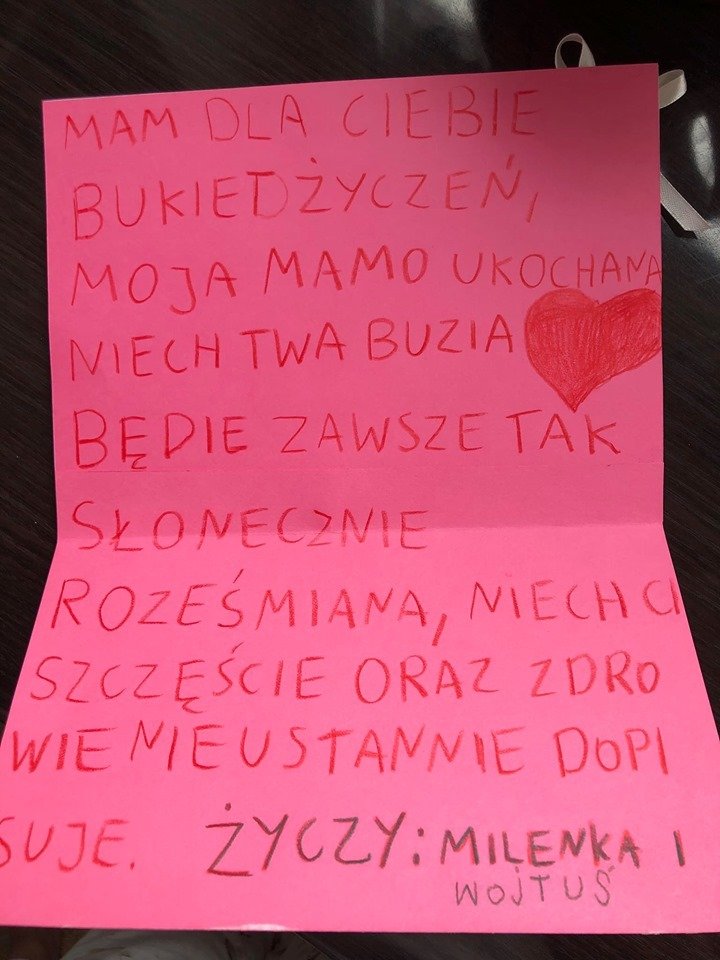 MAM DLA CIEBIE
BUKIED ŻYCZEŃ,
MOJA MAMO UKOCHANA
NIECH TWA BUZIA
BĘDIE ZAWSZE TAK
SŁONECZNIE
ROZEŚMIANA, NIECH CI
SZCZĘŚCIE ORAZ ZDRO
WIE NIEUSTANNIE DOPI
SUJE. ŻYCZY: MILENKA I
WOJTUŚ